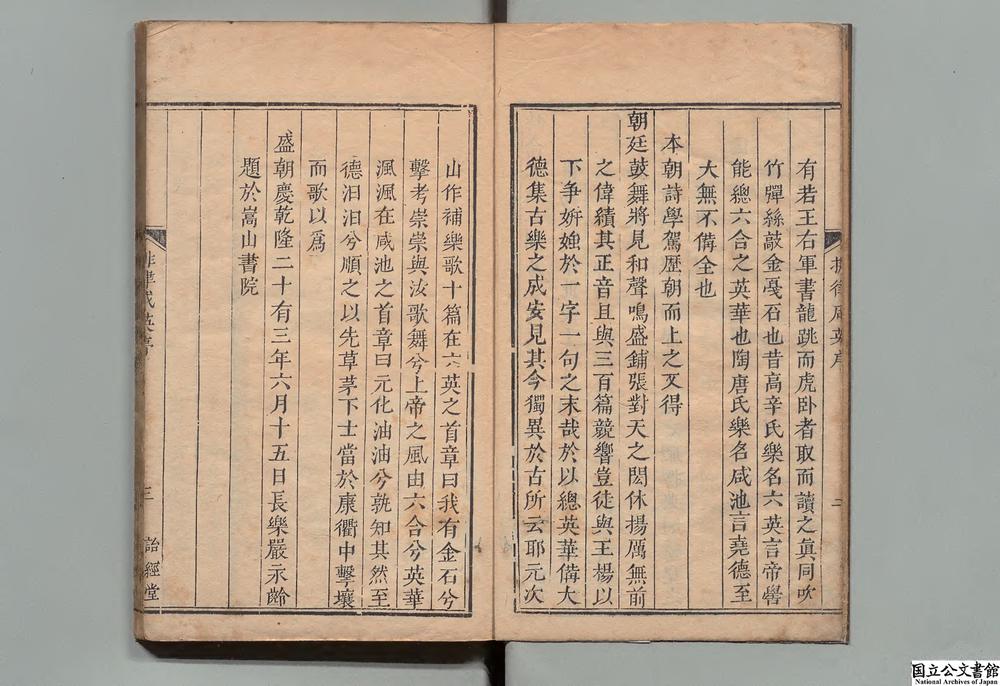 有若王右軍書龍跳而虎卧者取而讀之眞同吹
竹彈絲敲金戞石也昔高辛氏樂名六英言帝嚳
能總六合之英華也陶唐氏樂名咸池言堯德至
大無不備全也
本朝詩學駕歷朝而上之又得
朝廷鼓舞將見和聲鳴盛鋪張對天之閎休揚厲無前
之偉績其正音且與三百篇競響豈徒與王楊以
下爭妍媸於一字一句之末哉於以總英華備大
德集古樂之成安見其今獨異於古所云耶元次
二
山作補樂歌十篇在六英之首章曰我有金石兮
擊考崇崇與汝歌舞兮上帝之風由六合兮英華
渢渢在咸池之首章曰元化油油兮孰知其然至
德汩汩兮順之以先草茅下士當於康衢中擊壤
而歌以爲
盛朝慶乾隆二十有三年六月十五日長樂嚴示齡
題於嵩山書院
三
詒經堂
国立公文書館
National Archives of Japan